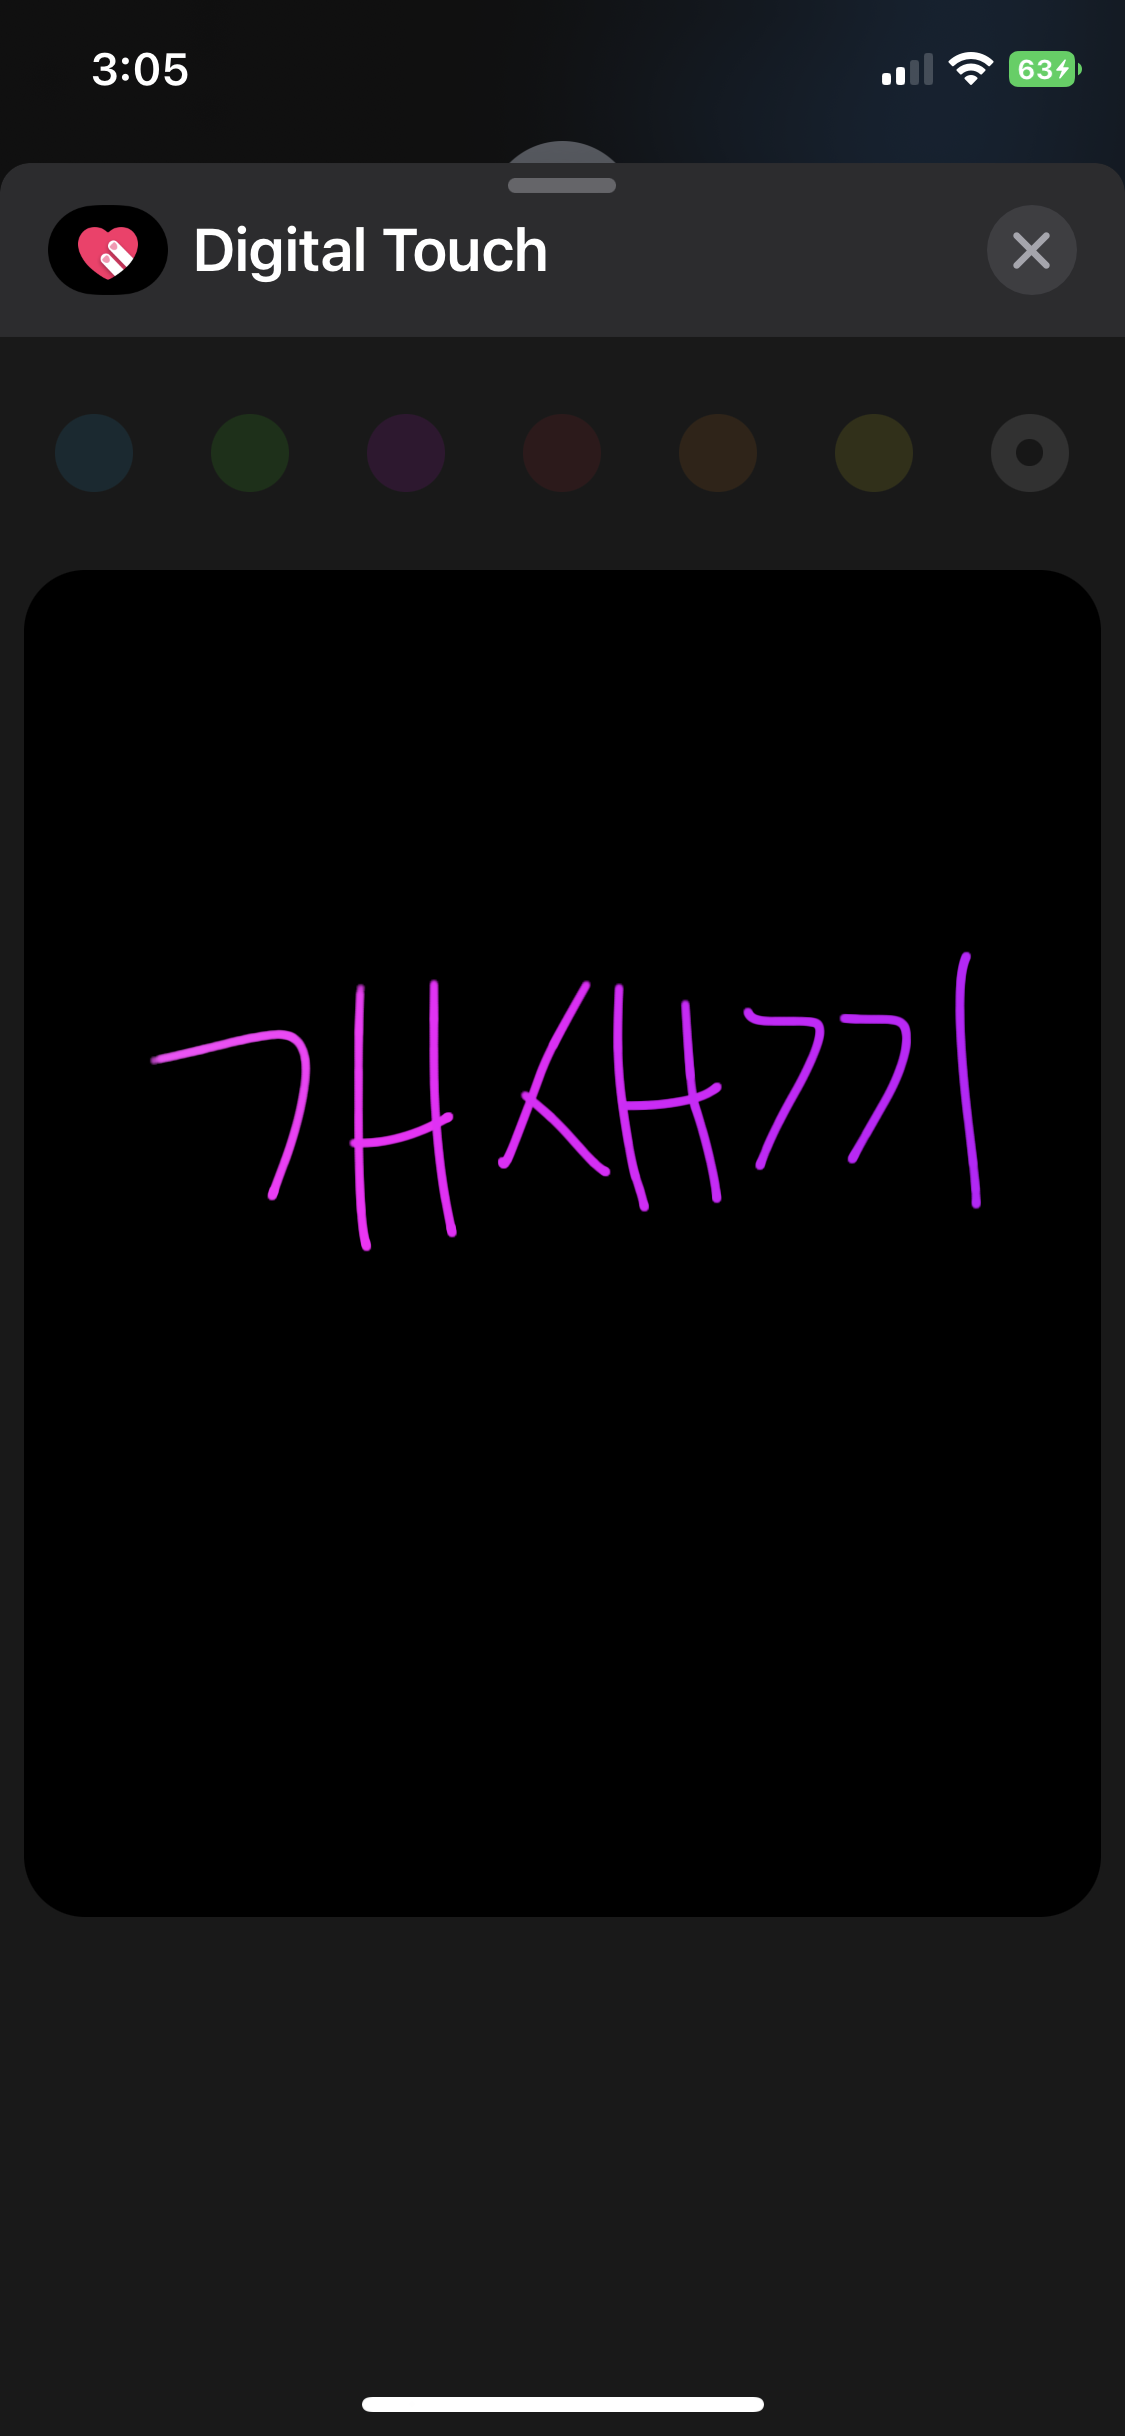 3:05
63
Digital Touch
개새끼